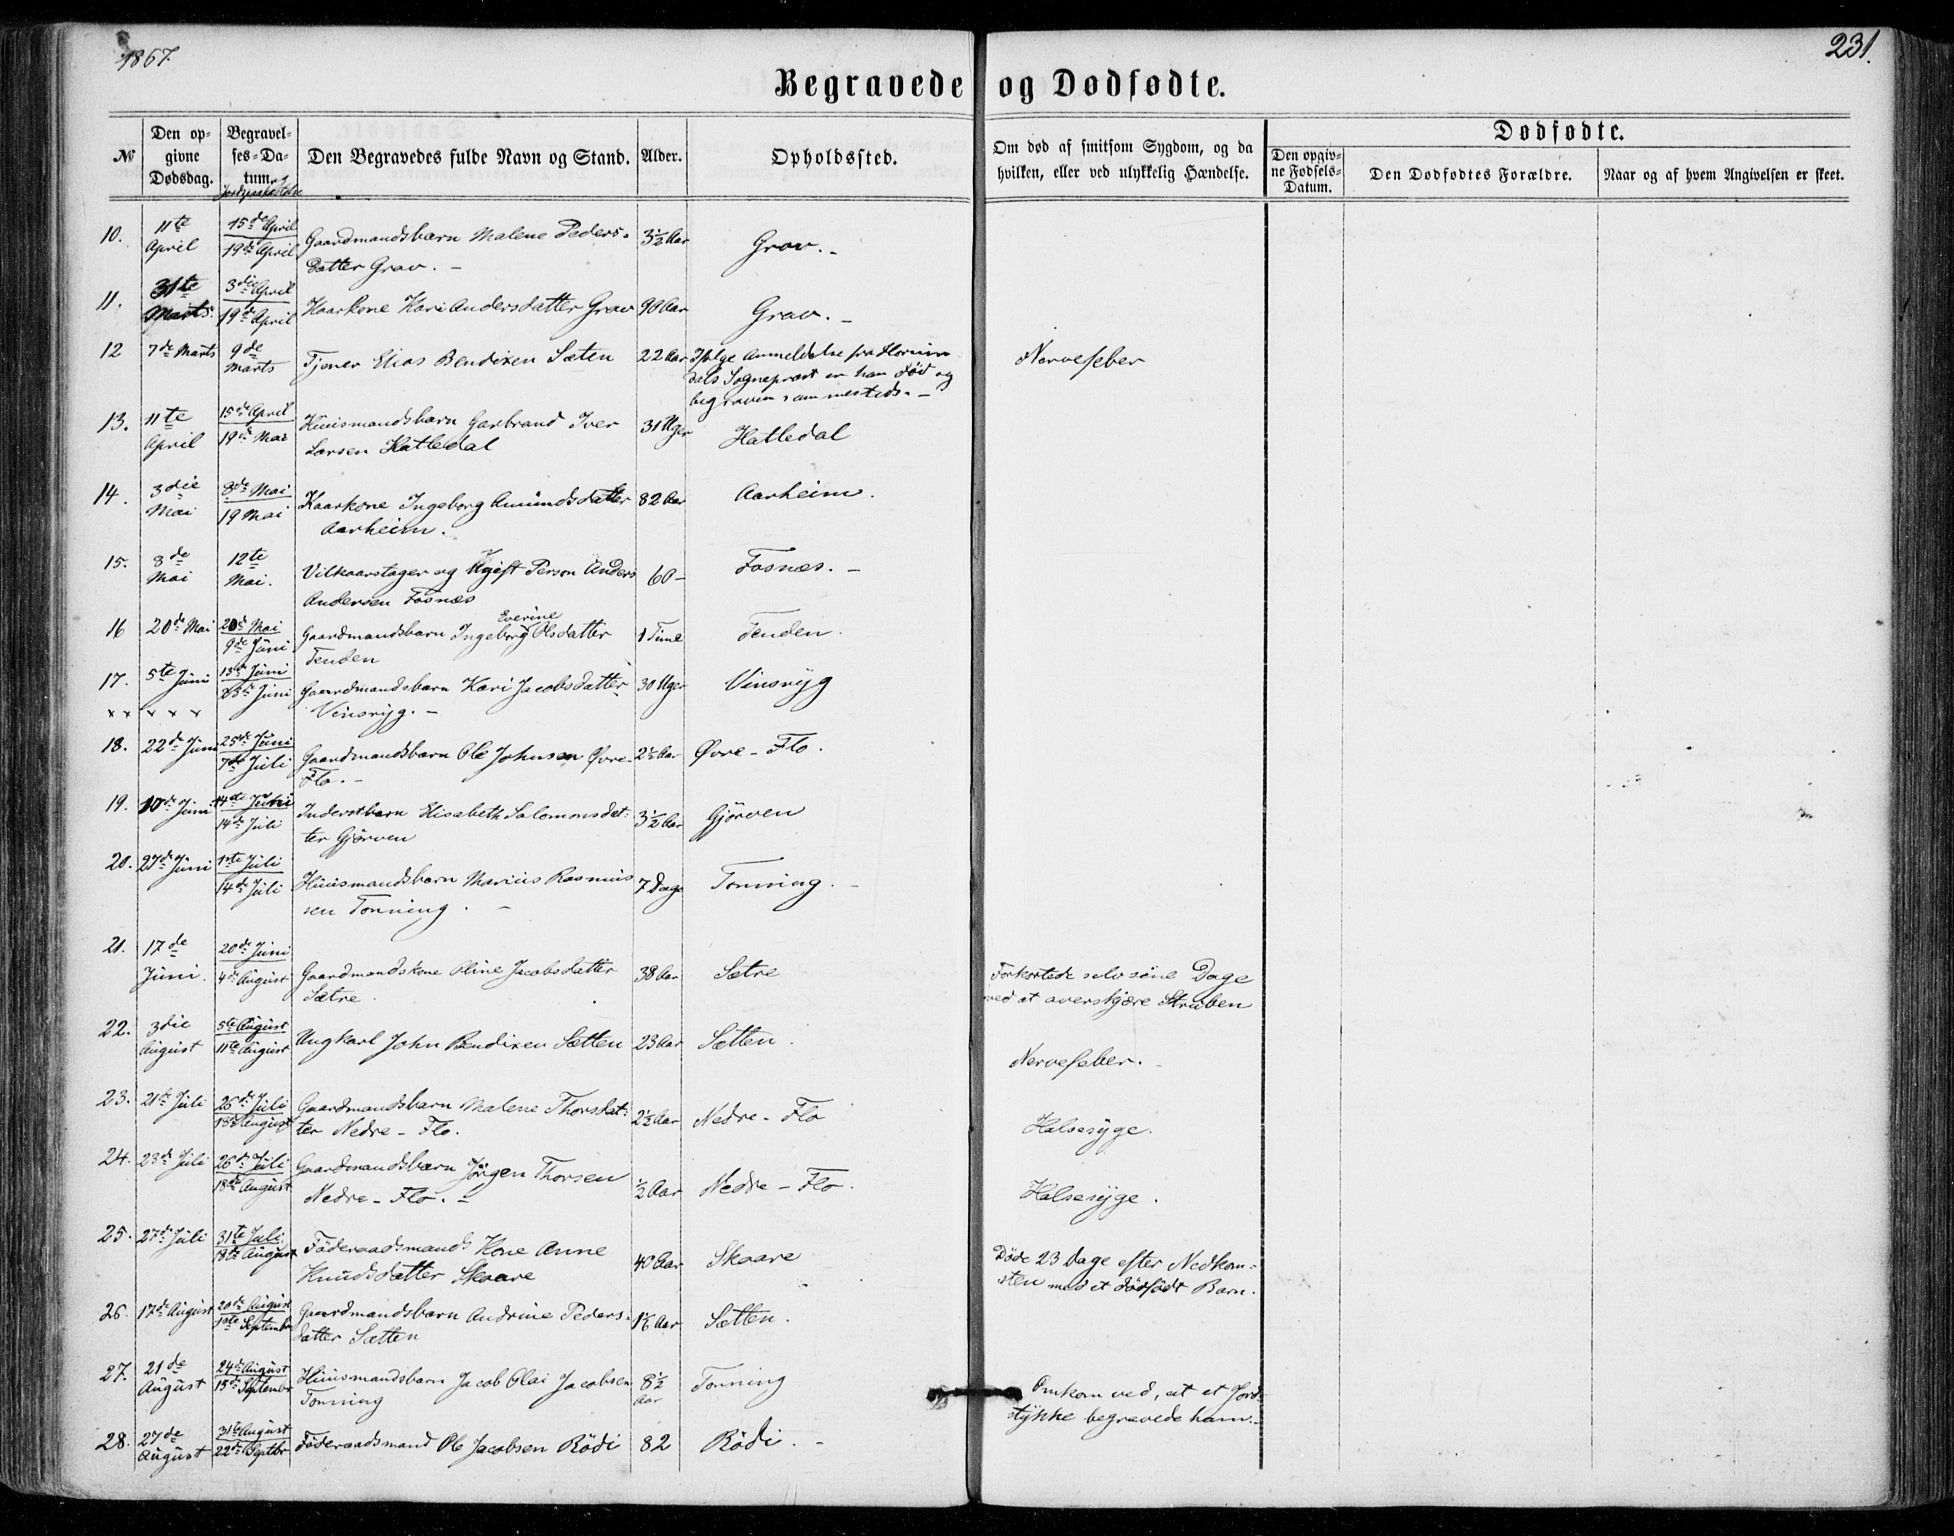 1867.
231.
Begravede og Dødfødte.
№
Den opgivne Dødsdag.
Begravelses-Datum og Jordpaakastelse
Den Begravedes fulde Navn og Stand.
Alder.
Opholdssted.
Om død af smitsom Sygdom, og da hvilken, eller ved ulykkelig Hændelse.
Dødfødte.
Den opgivne Fødsels-Datum.
Den Dødfødtes Forældre.
Naar og af hvem Angivelsen er skeet.
10. 11te April 15de April 19de April Gaardmandsbarn Malene Peders- 3½ Aar Grav. -
datter Grav. -
11. 31te Marts 3die April 19de April Kaarkone Kari Andersdatter Grav 90 Aar Grav. -
12 7de Marts 9de Marts Tjener Elias Bendixen Sæten 22 Aar Ifølge Anmeldelse fra Hornin- Nervefeber
dals Sognepræst er han død og
begraven sammesteds. -
13. 11te April 15de April 19de Mai Huusmandsbarn Garbrand Iver 31 Uger Hatledal
Larsen Hatledal
14. 3die Mai 8de Mai 19 Mai Kaarkone Ingeborg Amundsdatter 82 Aar Aarheim.
Aarheim.
15. 8de Mai 12te Mai. Vilkaarstager og Ugift Person Anders 60 - Fosnæs. -
Andersen Fosnæs
16 20de Mai 20de Mai 9de Juni Gaardmandsbarn Ingeborg Everine Olsdatter 1 Time Tenden.
Tenden
17. 5te Juni 13de Juni 23de Juni Gaardmandsbarn Kari Jacobsdatter 30 Uger Vinsryg
x x x x x Vinsryg. -
18. 22de Juni 25de Juni 7de Juli Gaardmandsbarn Ole Johnsen Øvre- 2½ Aar Øvre - Flo.
Flo. -
19. 10de Juni 14de Juni 14de Juli Inderstbarn Elisabeth Salomonsdat- 3½ Aar Gjørven
ter Gjørven
20. 27de Juni 1ste Juli 14de Juli Huusmandsbarn Marius Rasmus 7 Dage Tonning. -
sen Tonning. -
21. 17de Juni. 20de Juni 4de August Gaardmandskone Oline Jacobsdatter 38 Aar Sætre Forkortede selv sine Dage
Sætre. ved at overskjære Struben
22. 3die August 5te August 11te August Ungkarl John Bendixen Sætten 23 Aar Sætten. Nervefeber. -
23. 21te Juli 26de Juli 18de August Gaardmandsbarn Malene Thorsdat- 2½ Aar Nedre - Flo Halsesyge.
ter Nedre - Flo.
24. 23de Juli 26de Juli 18de August Gaardmandsbarn Jørgen Thorsen ½ Aar Nedre - Flo. Halsesyge.
Nedre - Flo. -
25. 27de Juli 31te Juli 18te August Föderaadsmands Kone Anne 40 Aar Skaare Døde 23 Dage efter Nedkom-
Knudsdatter Skaare sten med et dødfødt Barn.
26. 17de August 20de August 1ste September Gaardmandsbarn Andrine Peders- Aar Sætten.
datter Sætten
27. 21de August 24de August 15de September Huusmandsbarn Jacob Olai Jacobsen 8½ Aar Tonning Omkom ved, at et Jord-
Tonning stykke begravede ham. -
28. 27de August 31te August 22de Septbr Föderaadsmand Ole Jacobsen Rödi 82 Rödi. -